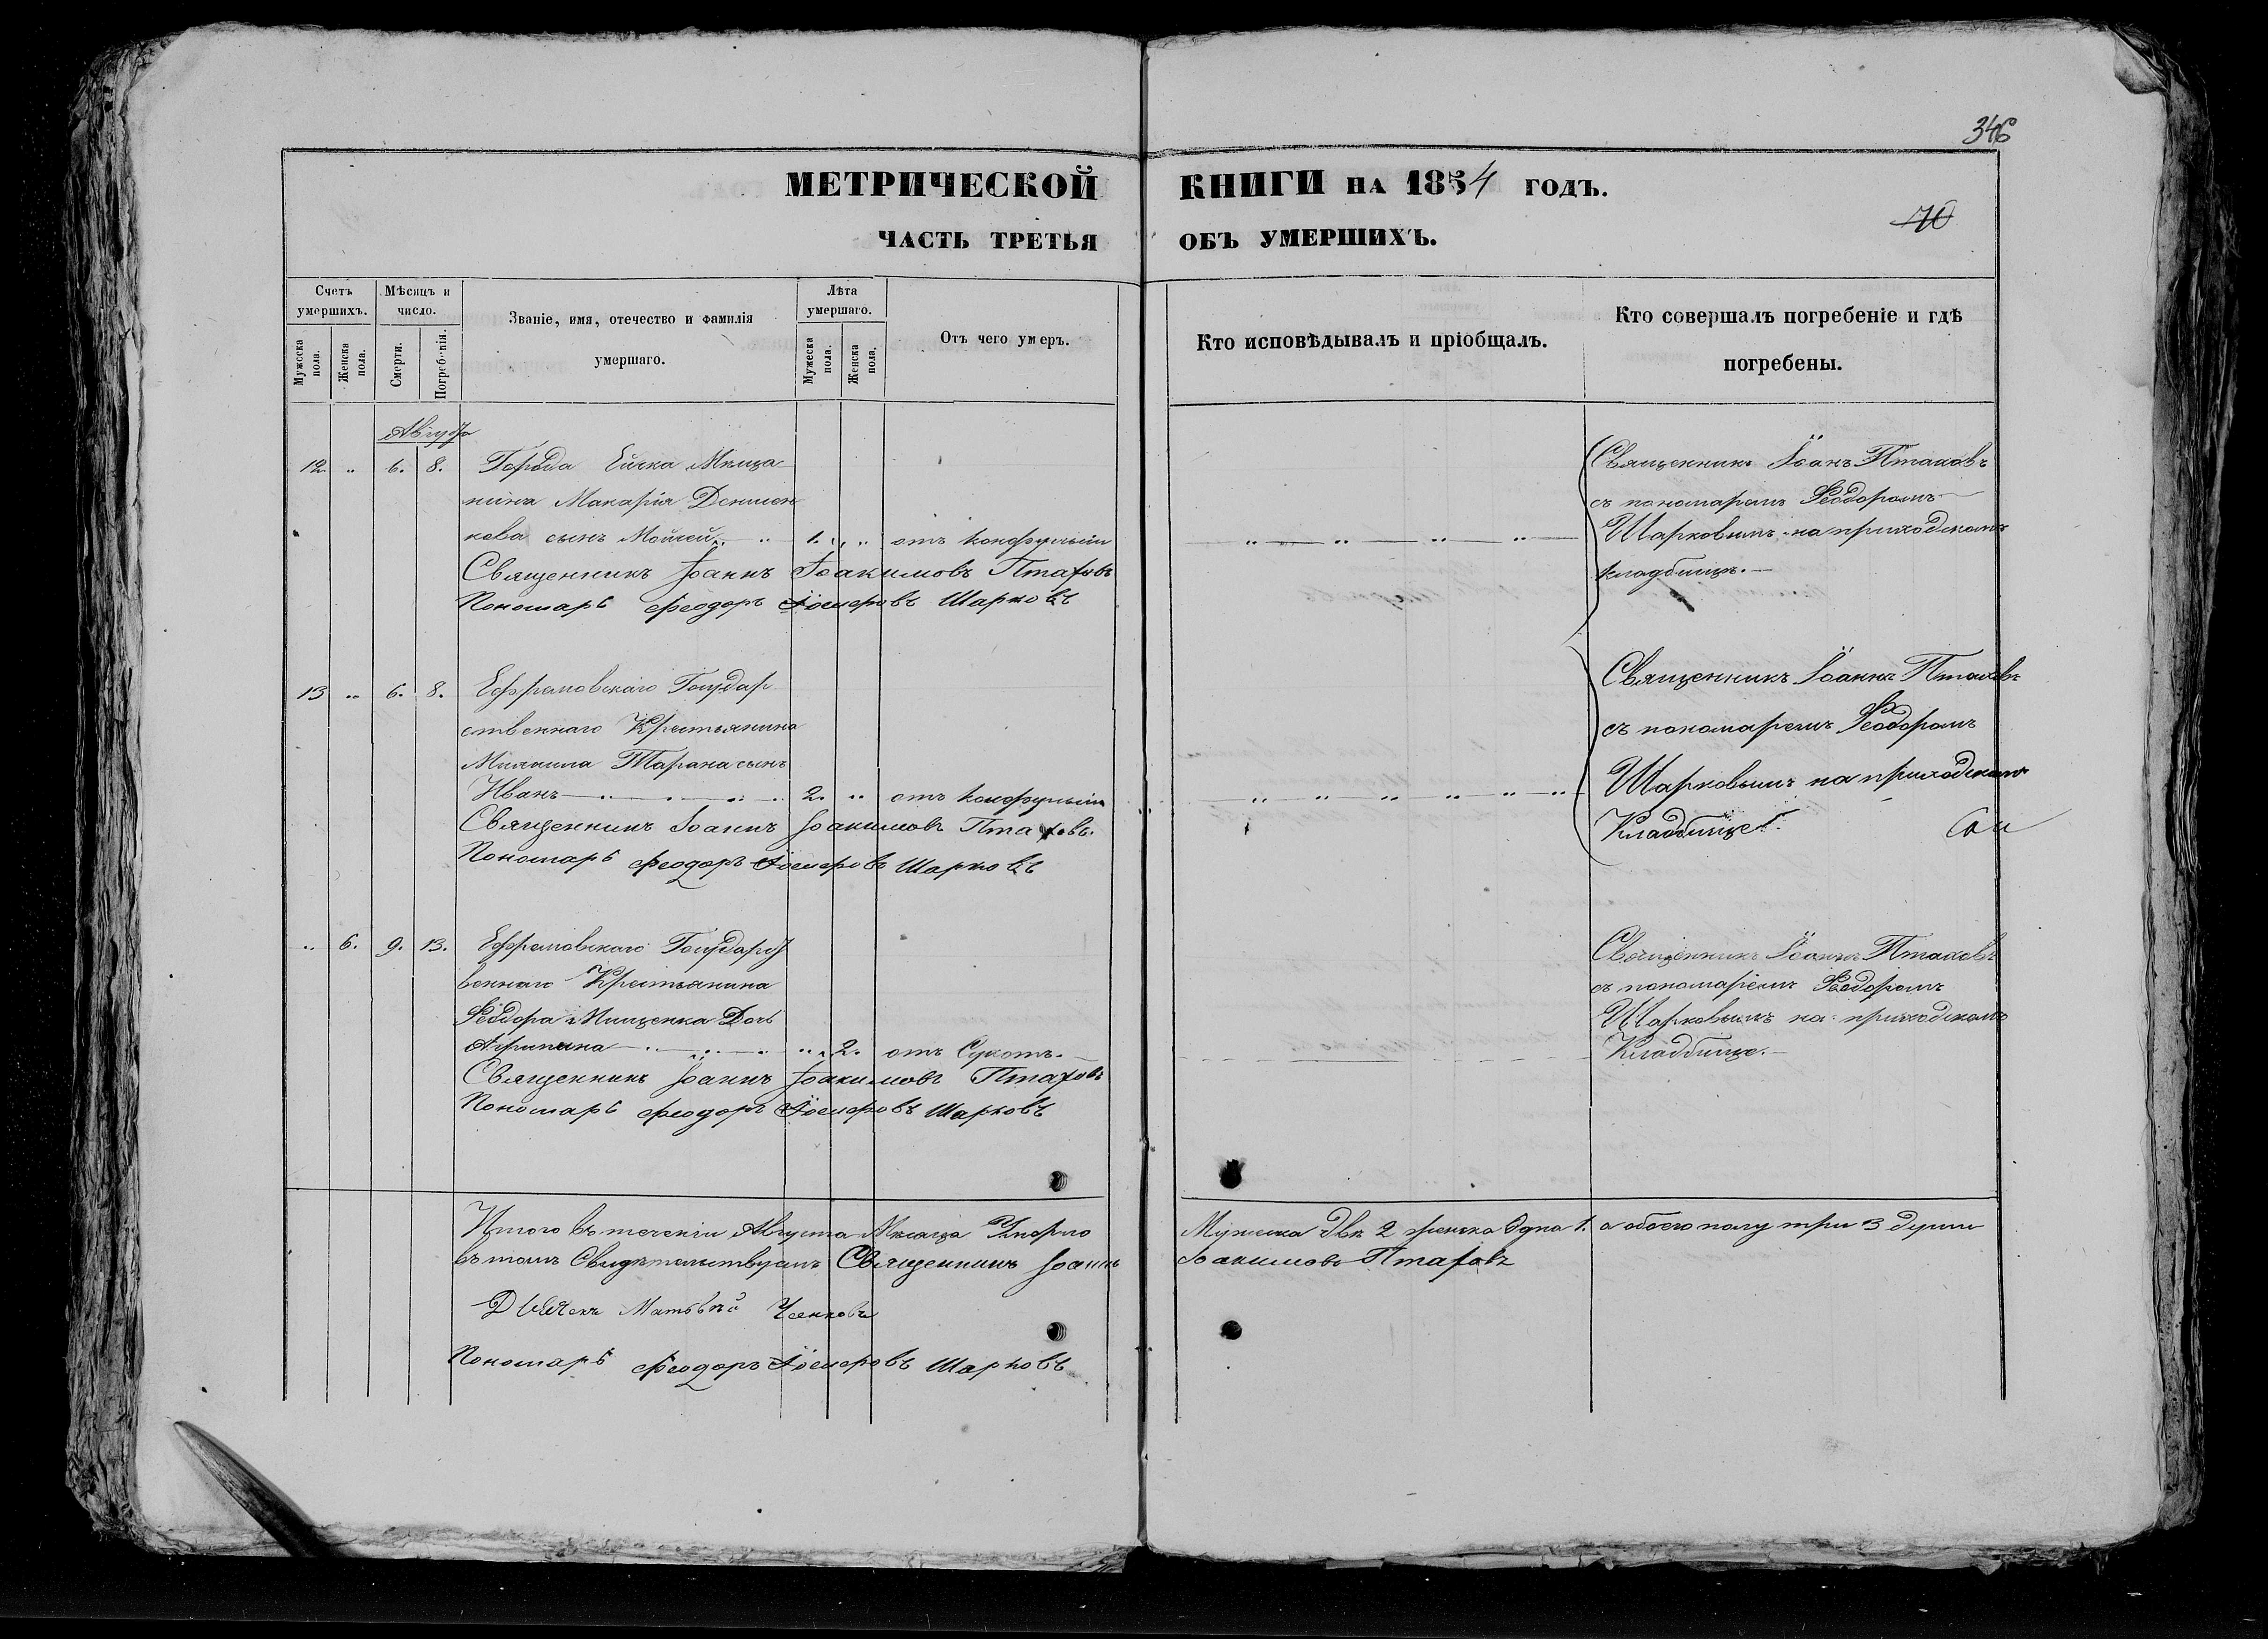 346
МЕТРИЧЕСКОЙ КНИГИ НА 1854 ГОДЪ.
70
ЧАСТЬ ТРЕТЬЯ ОБЪ УМЕРШИХЪ.
Счетъ умершихъ.
Мужеска пола.
Женска пола.
Мѣсяцъ и число.
Смерти.
Погребенія.
Званіе, имя, отечество и фамилія
умершаго.
Лѣта умершаго.
Мужеска пола.
Женска пола.
Отъ чего умеръ.
Кто исповѣдывалъ и пріобщалъ.
Кто совершалъ погребеніе и гдѣ
погребены.
Августа
12. " 6. 8. Города Ейска Мѣща
нина Макарія Денисен
кова сынъ Мойсей 1. " отъ конвульсіи
Священникъ Іоаннъ Іоакимовъ Птаховъ
Пономарь Феодоръ Шарковъ
Священникъ Іоанъ Птаховъ
съ пономаремъ Ѳеодоромъ
Шарковымъ на приходскомъ
кладбищѣ.
13 " 6. 8. Ефремовскаго Государ
ственнаго Крестьянина
Михаила Тарана сынъ
Иванъ 2. " отъ конвульсіи
Священникъ Іоаннъ Іоакимовъ Птаховъ.
Пономарь Феодоръ Шарковъ
Священникъ Іоаннъ Птаховъ
съ пономаремъ Ѳеодоромъ
Шарковымъ на приходскомъ
Кладбище.
" 6. 9. 13. Ефремовскаго Государст
веннаго Крестьянина
Ѳеодора Мищенка Дочь
Агрипина " 2. отъ Сухотъ.
Священникъ Іоаннъ Іоакимовъ Птаховъ
Пономарь Феодоръ Шарковъ
Священникъ Іоаннъ Птаховъ
съ пономаремъ Ѳеодоромъ
Шарковымъ на приходскомъ
Кладбище.
Итого въ теченіи Августа Мѣсяца Умерло Мужеска двѣ 2 женска одна 1. а обоего полу три 3 души
въ томъ Свидѣтельствуемъ Священникъ Іоаннъ Іоакимовъ Птаховъ
Дьячекъ Матѳѣй
Пономарь Феодоръ Шарковъ